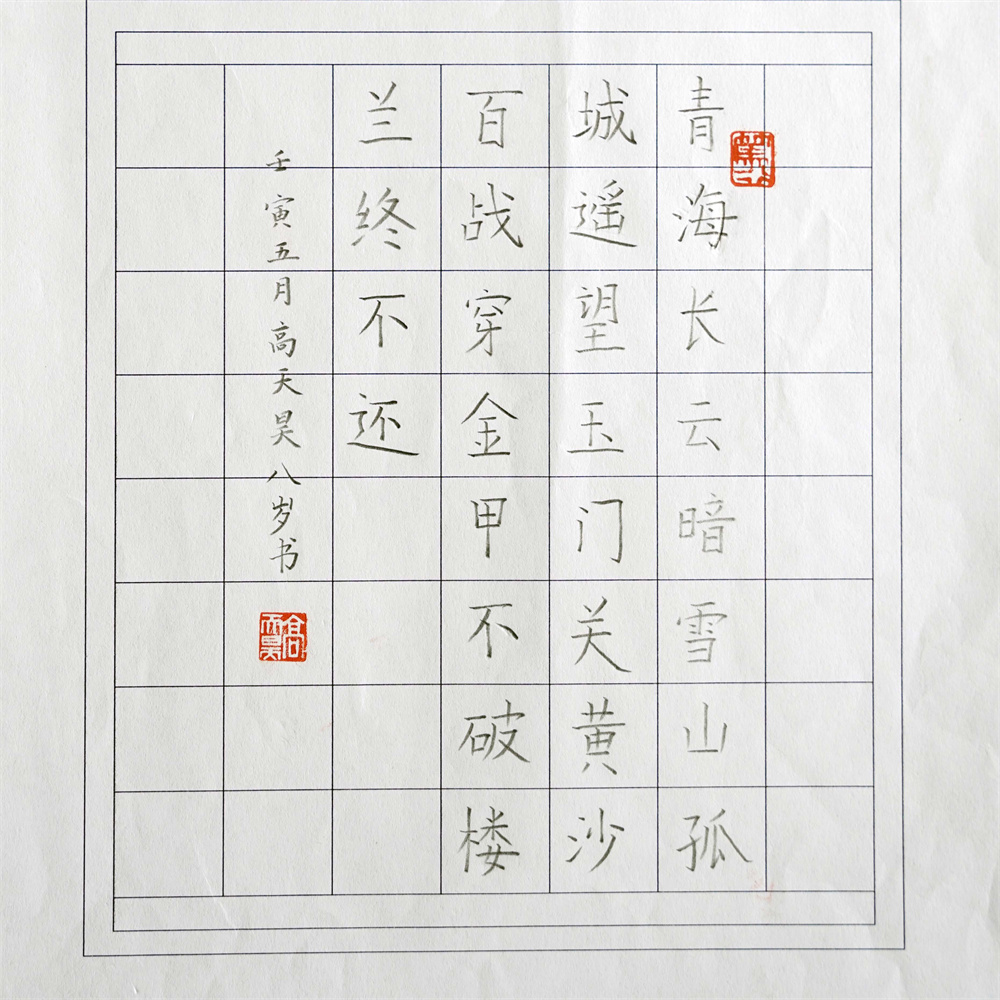 青海长云暗雪山孤
城遥望玉门关黄沙
百战穿金甲不破楼
兰终不还
壬寅五月高天昊八岁书
高天昊